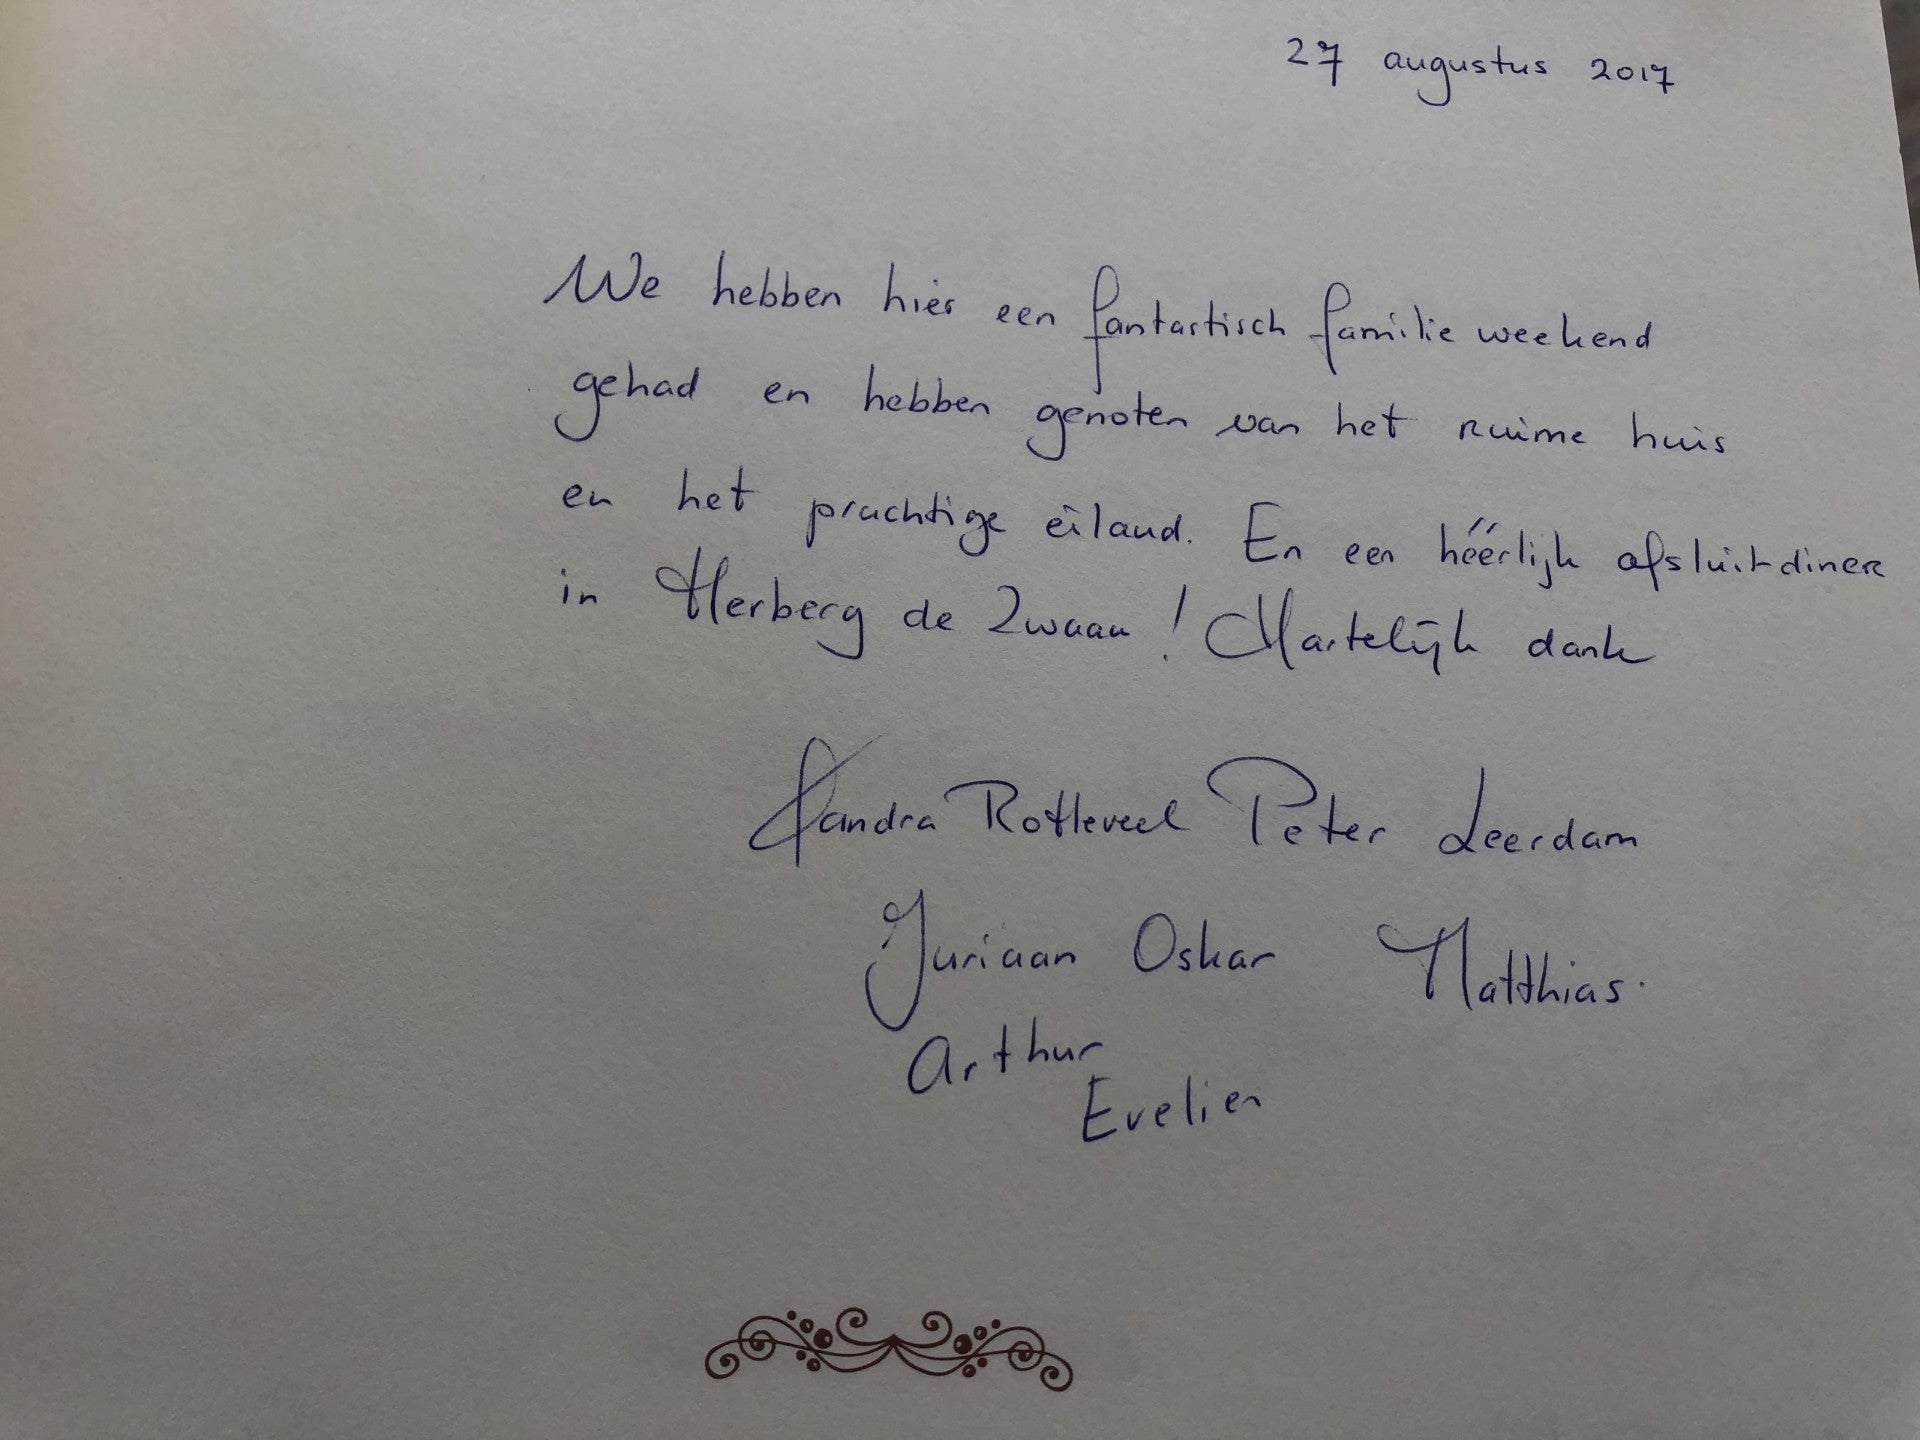 27 augustus 2017
We hebben hier een fantastisch familie weekend
gehad en hebben genoten van het ruime huis
en het prachtige eiland. En een héérlijk afsluitdiner
in Herberg de Zwaan! Hartelijk dank
Sandra Rotteveel Peter Leerdam
Juriaan Oskar Matthias.
Arthur
Evelien